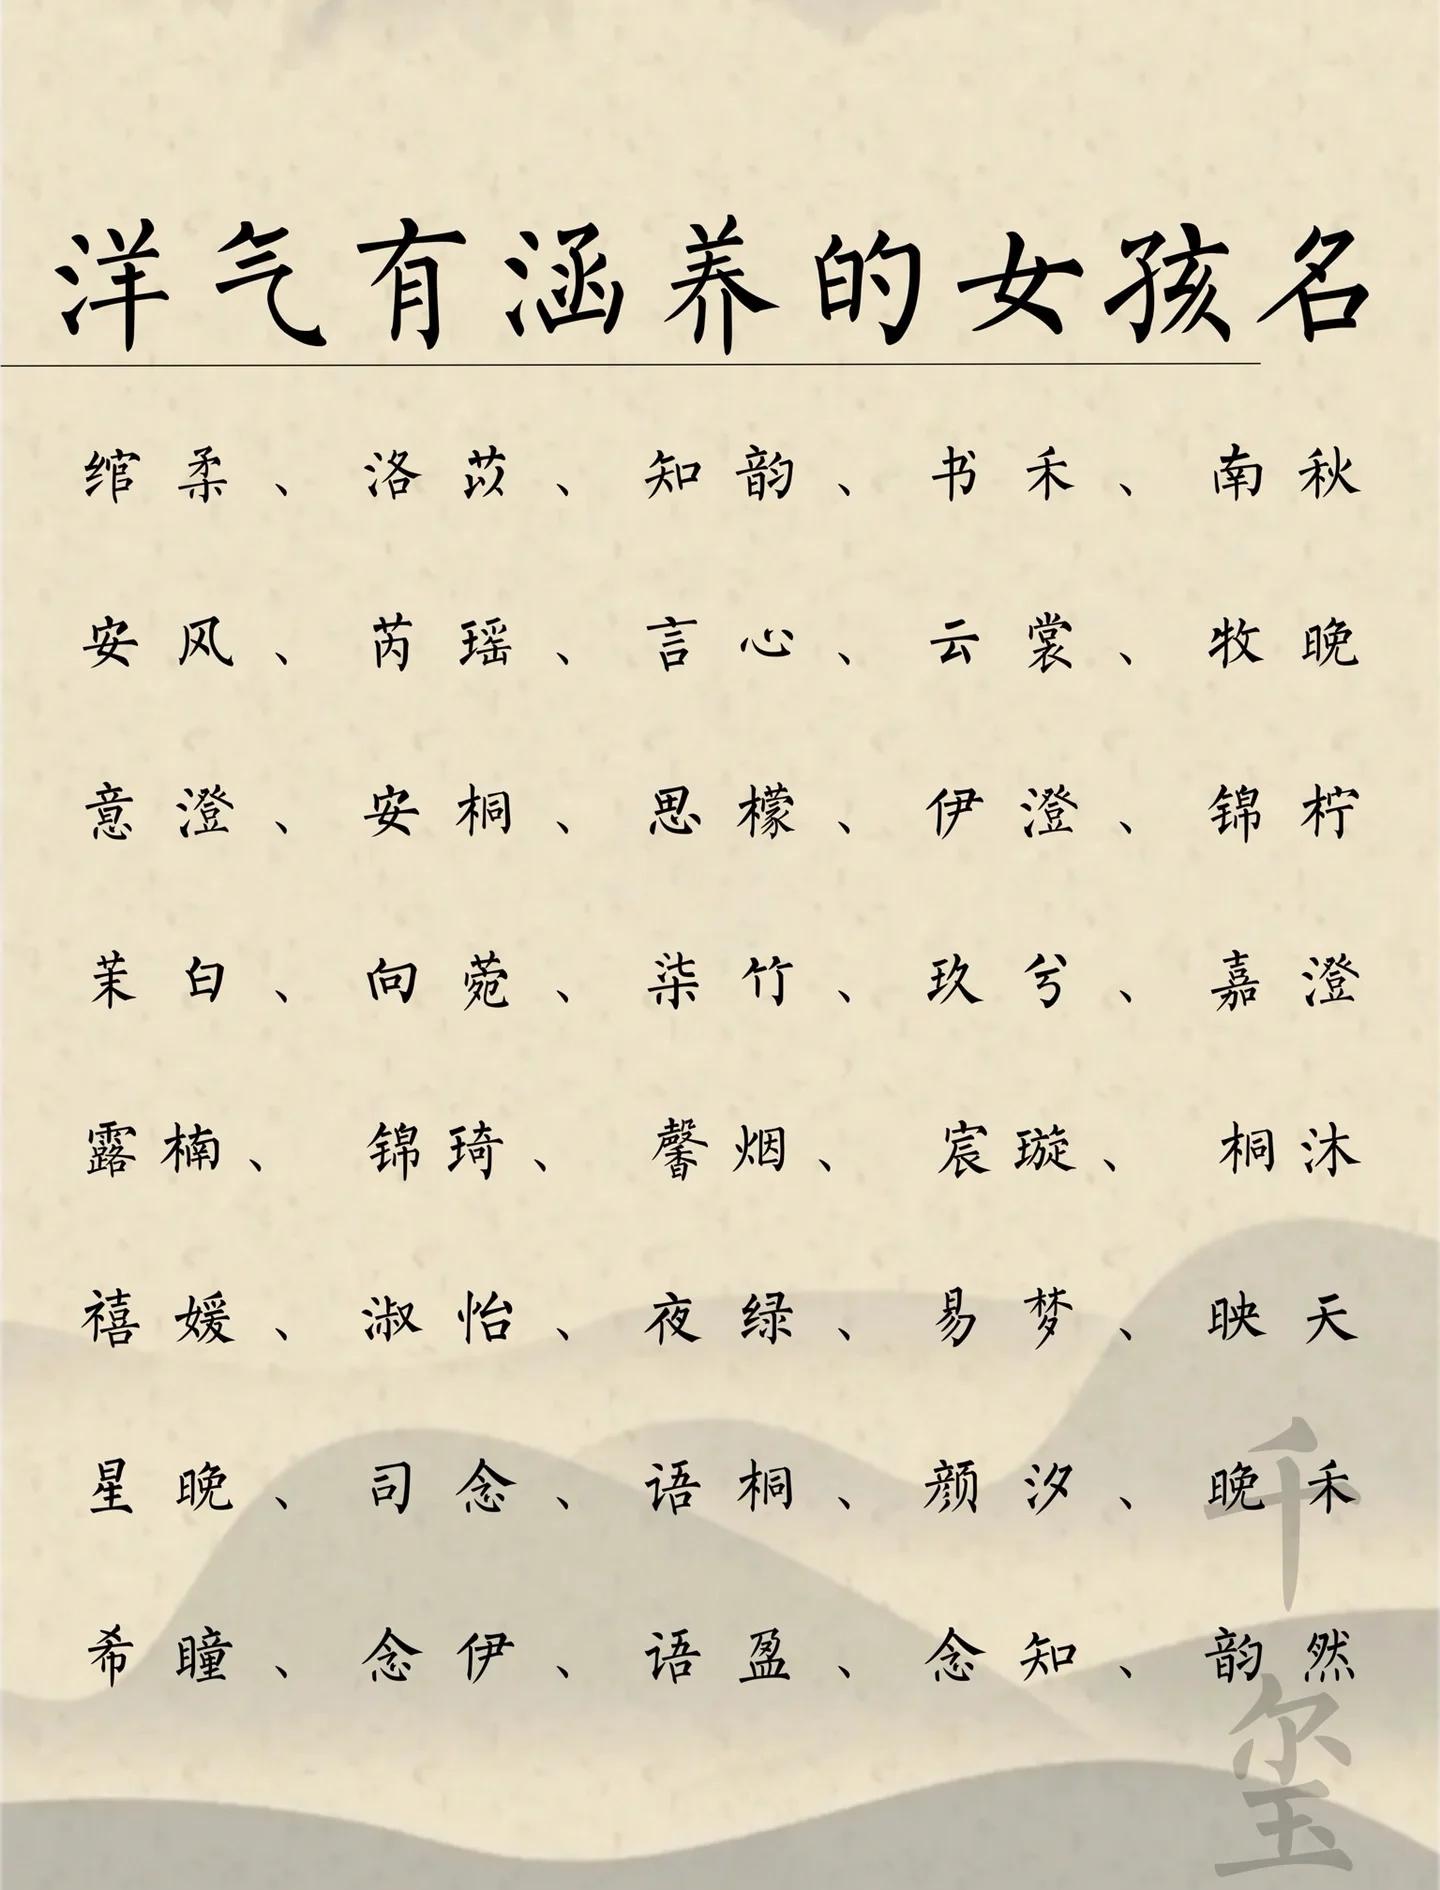 洋气有涵养的女孩名
绾柔、洛苡、知韵、书禾、南秋
安风、芮瑶、言心、云裳、牧晚
意澄、安桐、思檬、伊澄、锦柠
茉白、向菀、柒竹、玖兮、嘉澄
露楠、锦琦、馨烟、宸璇、桐沐
禧媛、淑怡、夜绿、易梦、映天
星晚、司念、语桐、颜汐、晚禾
希瞳、念伊、语盈、念知、韵然
千玺